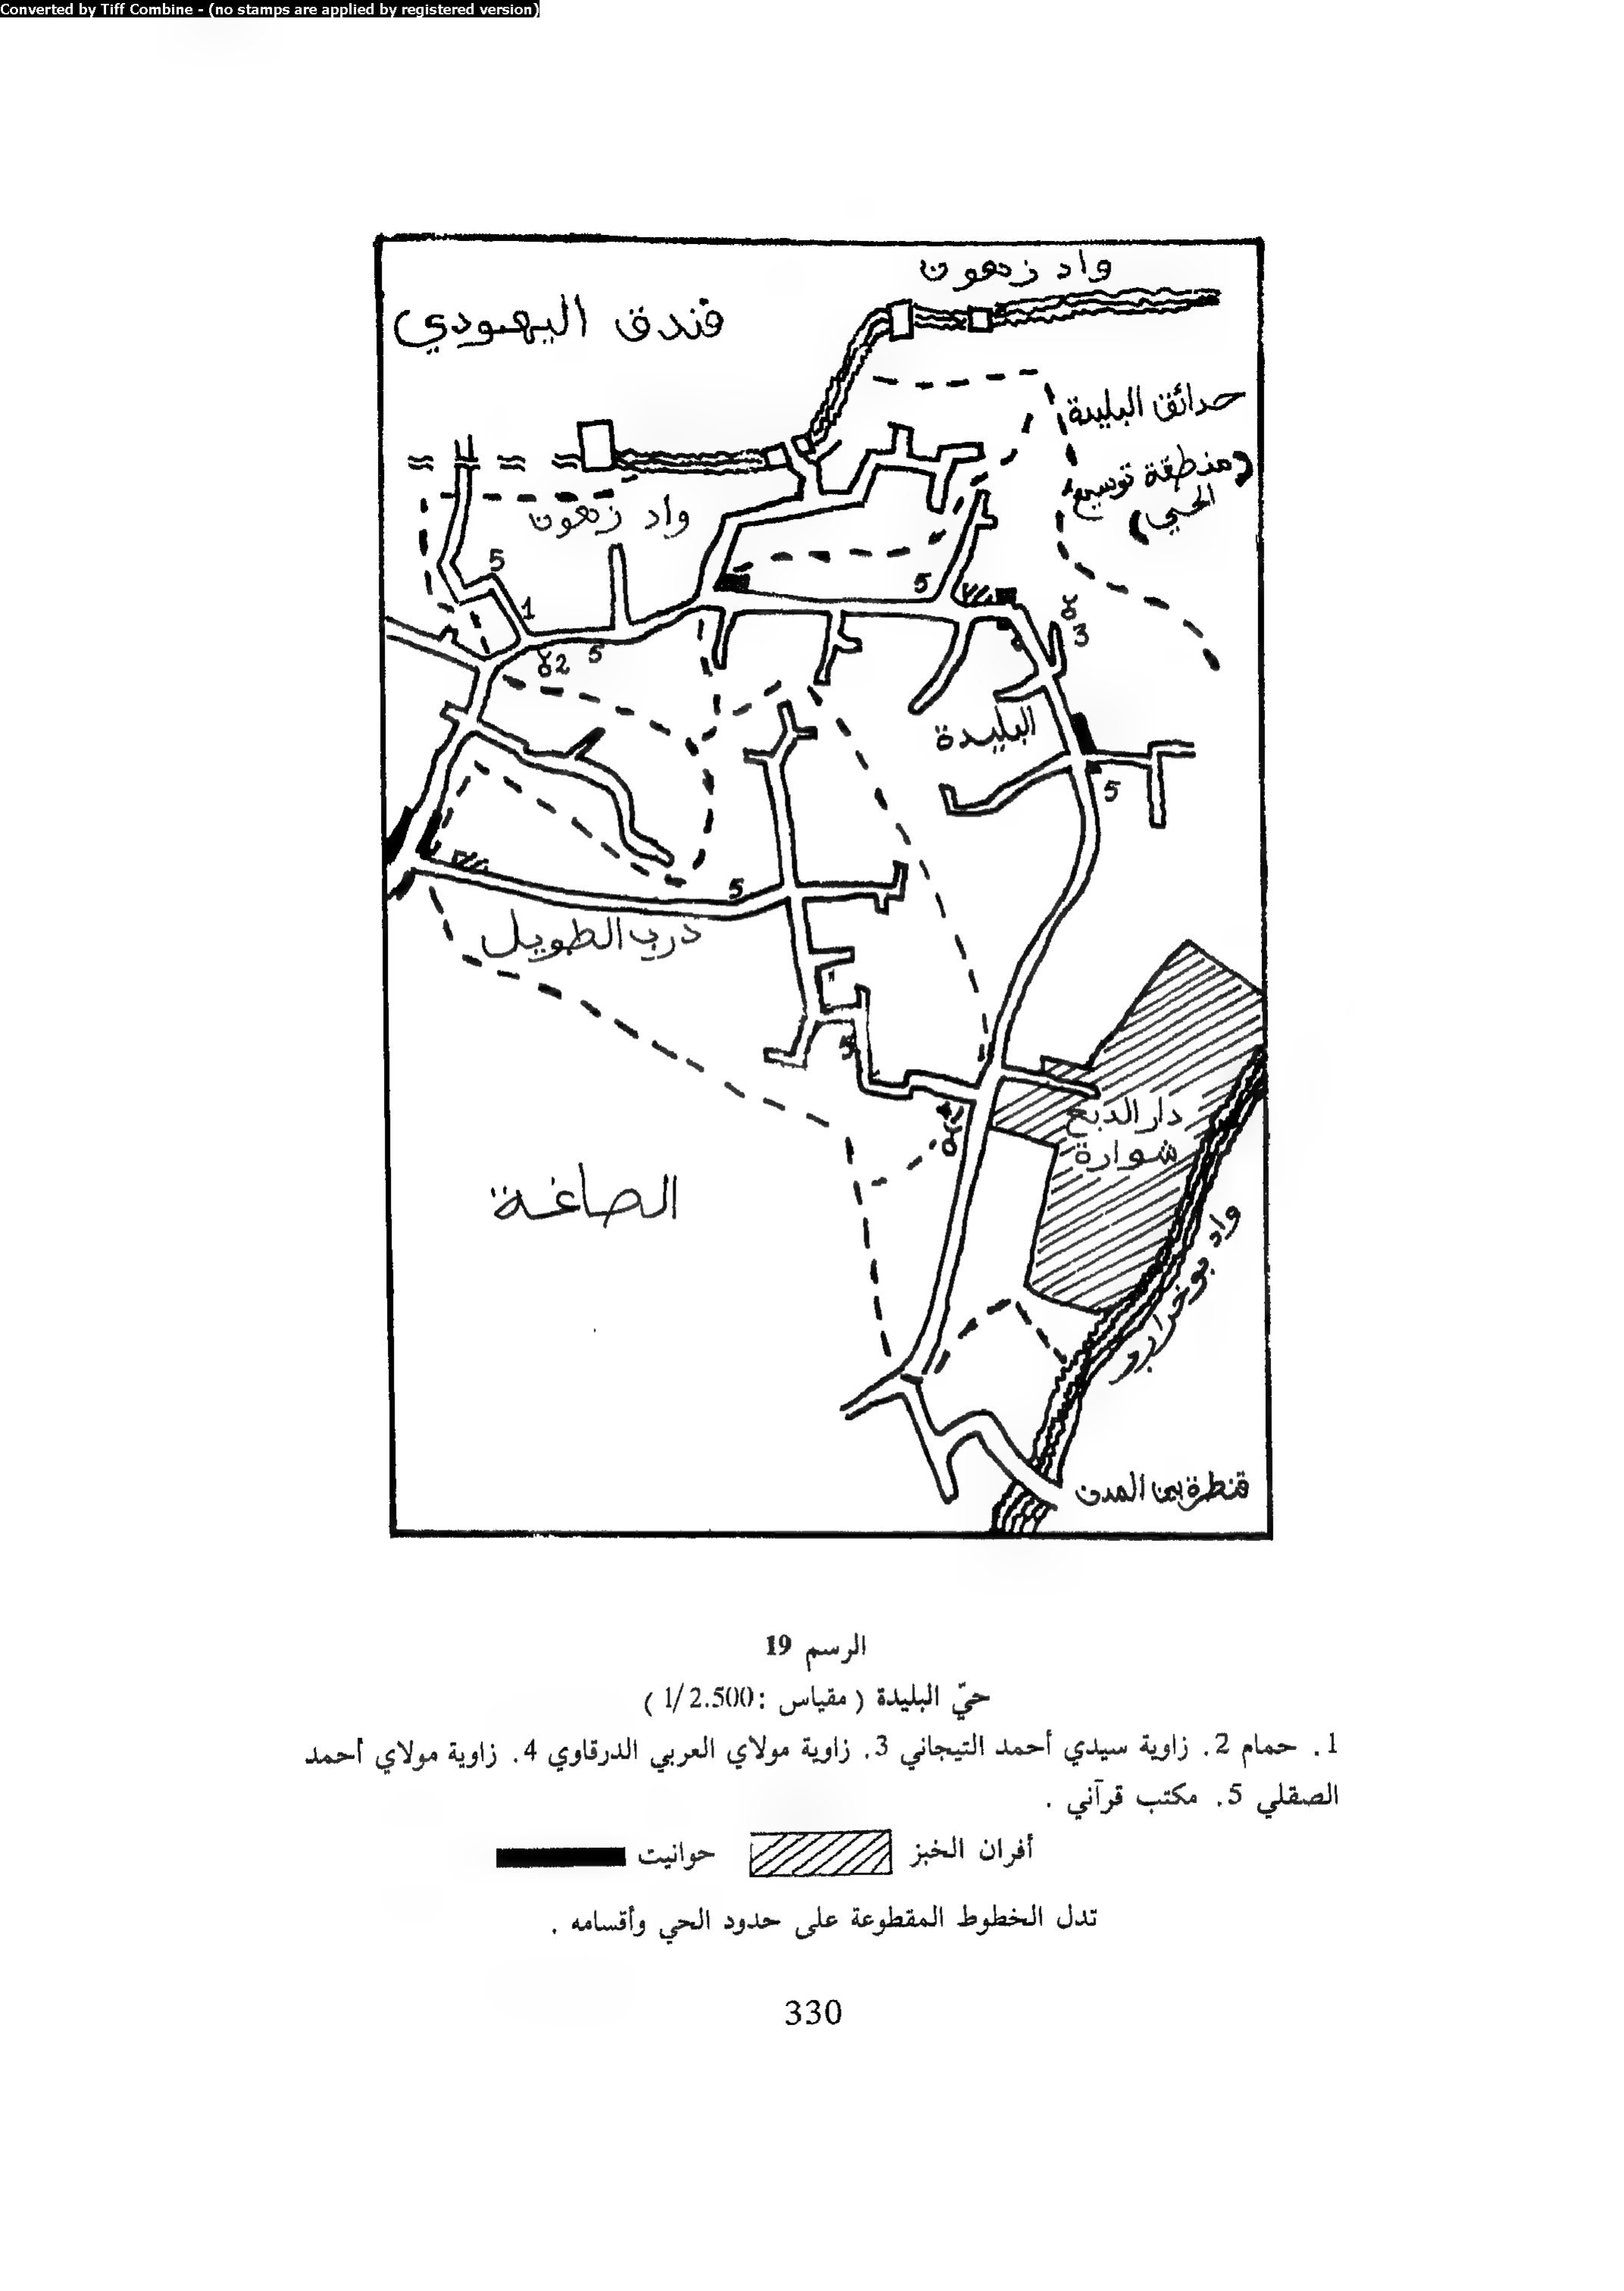 Converted by Tiff Combine - (no stamps are applied by registered version)
واد زهون
فندق اليهودي
حدائق البليدة
(منطقة توسيع
الحي)
واد زهون
5
1
5
2
5
3
البليدة
5
5
درب الطويل
5
4
دار الدبغ
شوارة
الصاغة
واد بوخرارب
قنطرة بين المدن
الرسم 19
حيّ البليدة ( مقياس : 1/2.500 )
1. حمام 2. زاوية سيدي أحمد التيجاني 3. زاوية مولاي العربي الدرقاوي 4. زاوية مولاي أحمد
الصقلي 5. مكتب قرآني .
أفران الخبز حوانيت
تدل الخطوط المقطوعة على حدود الحي وأقسامه .
330